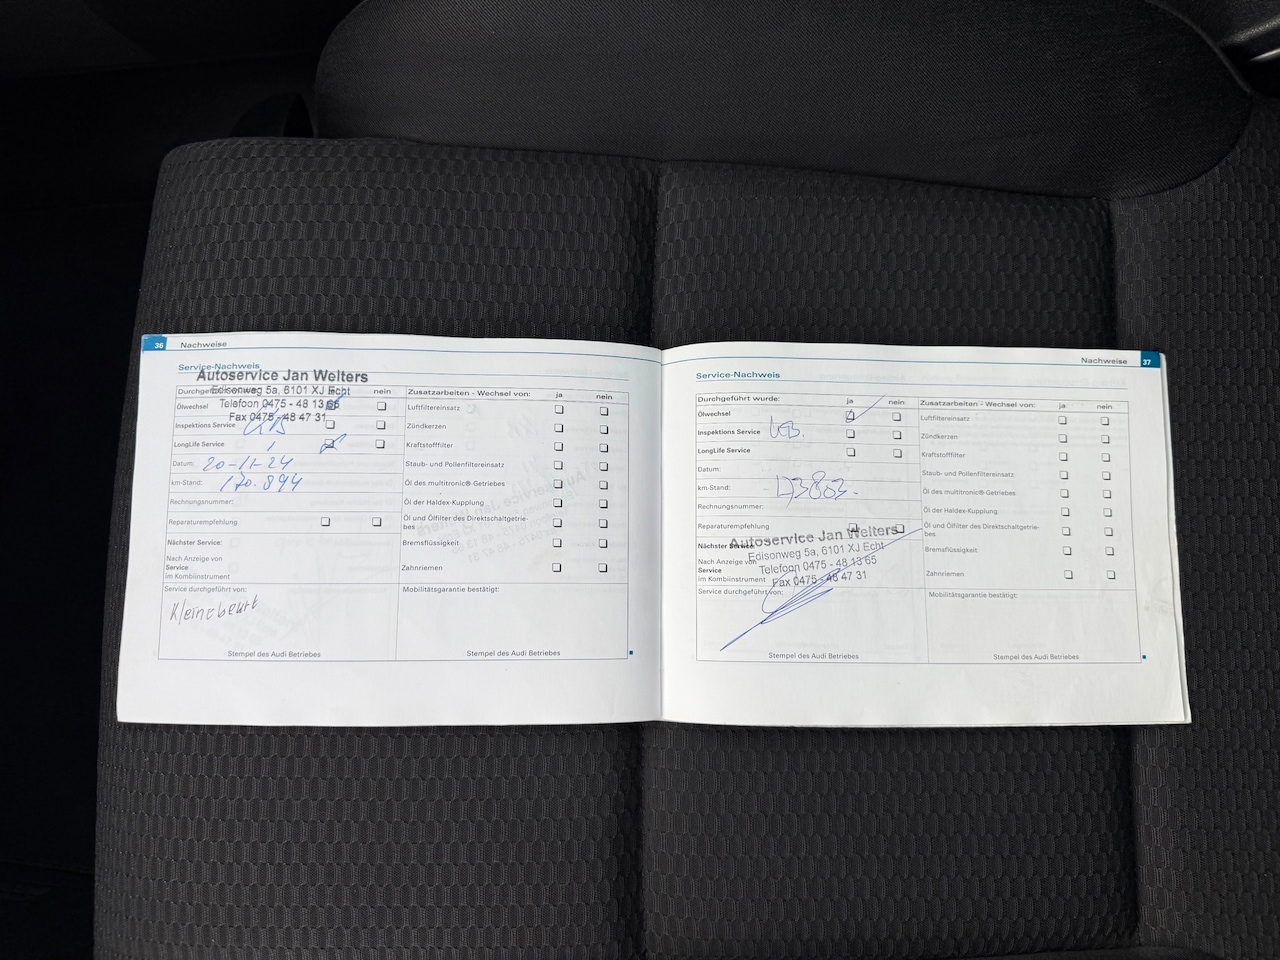 36 Nachweise
Service-Nachweis
Autoservice Jan Welters
Edisonweg 5a, 6101 XJ Echt
Telefoon 0475 - 48 13 65
Fax 0475 - 48 47 31
nein
Ölwechsel
Inspektions Service
LongLife Service
Datum: 20-11-24
km-Stand: 170.894
Rechnungsnummer:
Reparaturempfehlung
Nächster Service:
Nach Anzeige von
Service
im Kombiinstrument
Service durchgeführt von:
Kleine beurt
Stempel des Audi Betriebes
Zusatzarbeiten - Wechsel von: ja nein
Luftfiltereinsatz
Zündkerzen
Kraftstofffilter
Staub- und Pollenfiltereinsatz
Öl des multitronic®-Getriebes
Öl der Haldex-Kupplung
Öl und Ölfilter des Direktschaltgetrie-
bes
Bremsflüssigkeit
Zahnriemen
Mobilitätsgarantie bestätigt:
Stempel des Audi Betriebes
Nachweise 37
Service-Nachweis
Durchgeführt wurde: ja nein
Ölwechsel
Inspektions Service
LongLife Service
Datum:
km-Stand: 173803.
Rechnungsnummer:
Reparaturempfehlung
Autoservice Jan Welters
Edisonweg 5a, 6101 XJ Echt
Telefoon 0475 - 48 13 65
Fax 0475 - 48 47 31
Nächster Service:
Nach Anzeige von
Service
im Kombiinstrument
Service durchgeführt von:
Stempel des Audi Betriebes
Zusatzarbeiten - Wechsel von: ja nein
Luftfiltereinsatz
Zündkerzen
Kraftstofffilter
Staub- und Pollenfiltereinsatz
Öl des multitronic®-Getriebes
Öl der Haldex-Kupplung
Öl und Ölfilter des Direktschaltgetrie-
bes
Bremsflüssigkeit
Zahnriemen
Mobilitätsgarantie bestätigt:
Stempel des Audi Betriebes